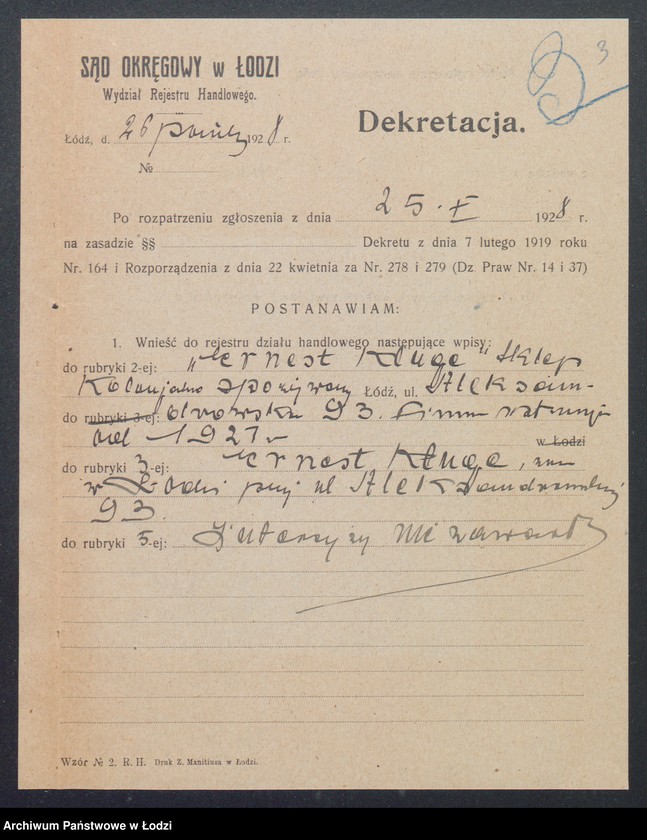 3
SĄD OKRĘGOWY w ŁODZI
Wydział Rejestru Handlowego.
Łódź, d. 26 paźdz 1928 r.
№
Dekretacja.
Po rozpatrzeniu zgłoszenia z dnia 25.X 1928 r.
na zasadzie §§ Dekretu z dnia 7 lutego 1919 roku
Nr. 164 i Rozporządzenia z dnia 22 kwietnia za Nr. 278 i 279 (Dz. Praw Nr. 14 i 37)
POSTANAWIAM:
1. Wnieść do rejestru działu handlowego następujące wpisy:
do rubryki 2-ej: „Ernest Kluge" sklep
Kolonjalno spożywczy Łódź, ul. Aleksan-
do rubryki 3-ej: drowska 93. Firma istnieje
od 1921 r
w Łodzi
do rubryki 3-ej: Ernest Kluge, zam
w Łodzi przy ul Aleksandrowskiej
93.
do rubryki 5-ej: Intercyzy nie zawarł
Wzór № 2. R. H. Druk Z. Manitiusa w Łodzi.
Archiwum Państwowe w Łodzi